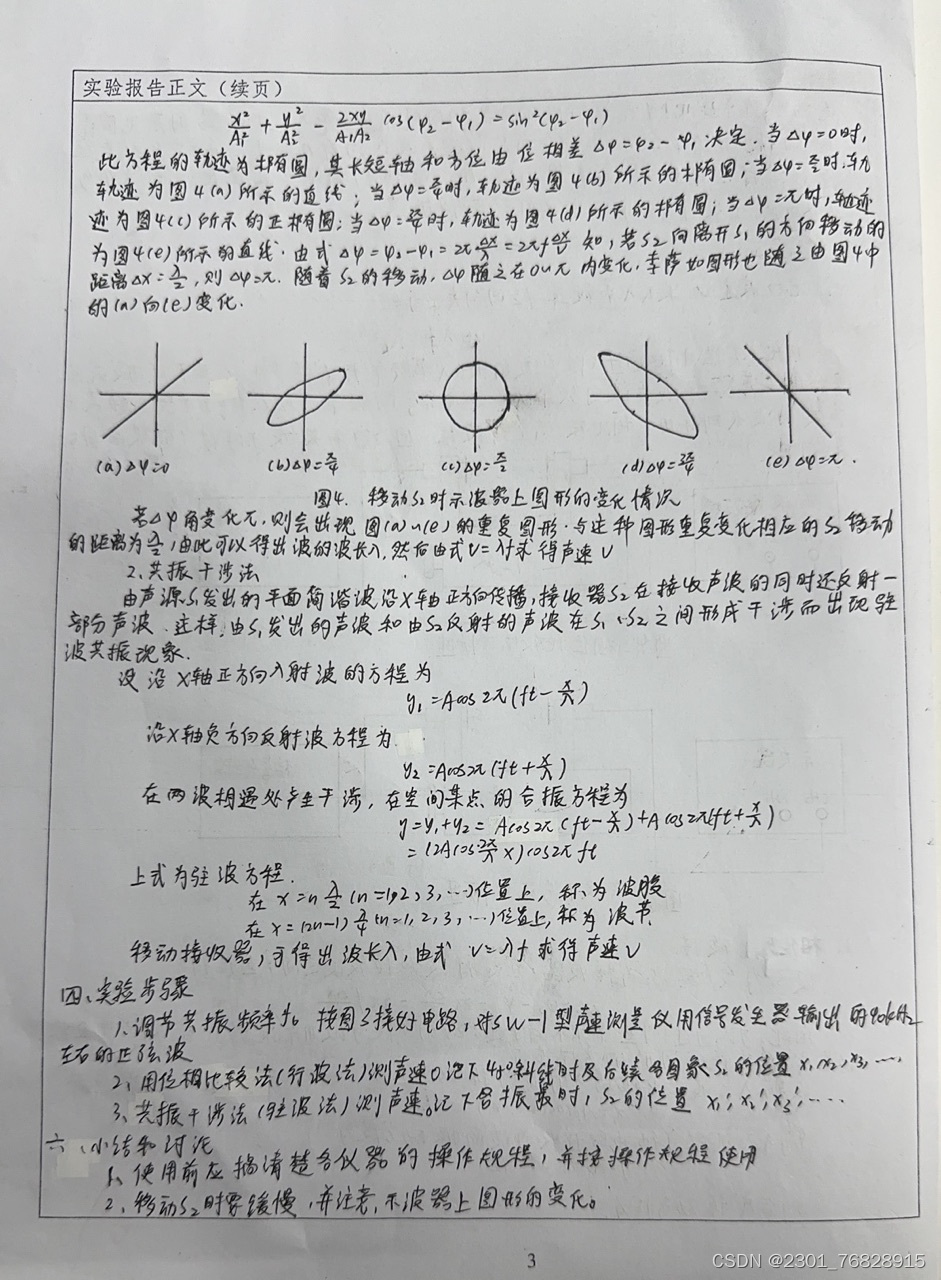 实验报告正文（续页）
x²/A₁² + y²/A₂² - 2xy/A₁A₂ cos(φ₂-φ₁) = sin²(φ₂-φ₁)
此方程的轨迹为椭圆，其长短轴和方位由位相差 Δφ=φ₂-φ₁ 决定。当Δφ=0时，
轨迹为图4(a)所示的直线；当Δφ=π/4时，轨迹为图4(b)所示的椭圆；当Δφ=π/2时，轨
迹为图4(c)所示的正椭圆；当Δφ=3π/4时，轨迹为图4(d)所示的椭圆；当Δφ=π时，轨迹
为图4(e)所示的直线。由式 Δφ=φ₂-φ₁=2πΔx/λ=2πfΔx/v 知，若S₂向离开S₁的方向移动的
距离Δx=λ/2，则Δφ=π。随着S₂的移动，Δφ随之在0~π内变化，李萨如图形也随之由图4中
的(a)向(e)变化。
(a)Δφ=0 (b)Δφ=π/4 (c)Δφ=π/2 (d)Δφ=3π/4 (e)Δφ=π.
图4. 移动S₂时示波器上图形的变化情况
若Δφ角变化π，则会出现图(a)~(e)的重复图形。与这种图形重复变化相应的S₂移动
的距离为λ/2，由此可以得出波的波长λ，然后由式V=λf求得声速V
2.共振干涉法
由声源S₁发出的平面简谐波沿X轴正方向传播，接收器S₂在接收声波的同时还反射一
部分声波。这样，由S₁发出的声波和由S₂反射的声波在S₁、S₂之间形成干涉而出现驻
波共振现象。
设沿X轴正方向入射波的方程为
y₁=Acos2π(ft-x/λ)
沿X轴负方向反射波方程为
y₂=Acos2π(ft+x/λ)
在两波相遇处产生干涉，在空间某点的合振方程为
y=y₁+y₂=Acos2π(ft-x/λ)+Acos2π(ft+x/λ)
=(2Acos2π/λ x)cos2πft
上式为驻波方程.
在x=nλ/2(n=1,2,3,…)位置上，称为波腹
在x=(2n-1)λ/4(n=1,2,3,…)位置上，称为波节.
移动接收器，可得出波长λ，由式 V=λf求得声速V
四、实验步骤
1.调节共振频率f₀ 按图3接好电路，对SW-1型声速测量仪用信号发生器输出的40kHz
左右的正弦波
2、用位相比较法(行波法)测声速。记下45°斜线时及后续各图象S₂的位置x₁,x₂,x₃……
3、共振干涉法(驻波法)测声速。记下合振最时，S₂的位置 x₁',x₂',x₃',……
六、小结和讨论
1、使用前应搞清楚各仪器的操作规程，并按操作规程使用
2、移动S₂时要缓慢，并注意示波器上图形的变化。
3
CSDN @2301_76828915